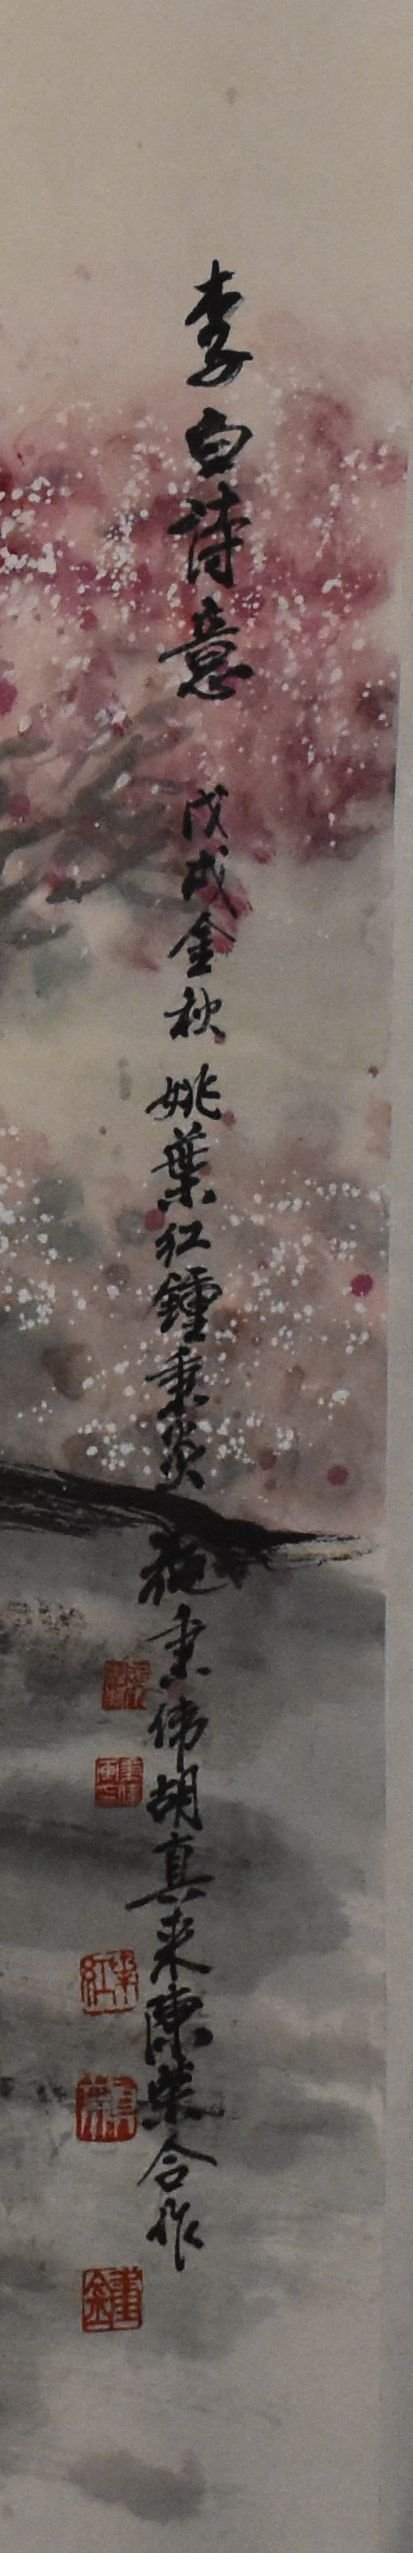 李白詩意 戊戌金秋 姚葉紅鍾秉炎施秉偉胡真来陳柴合作